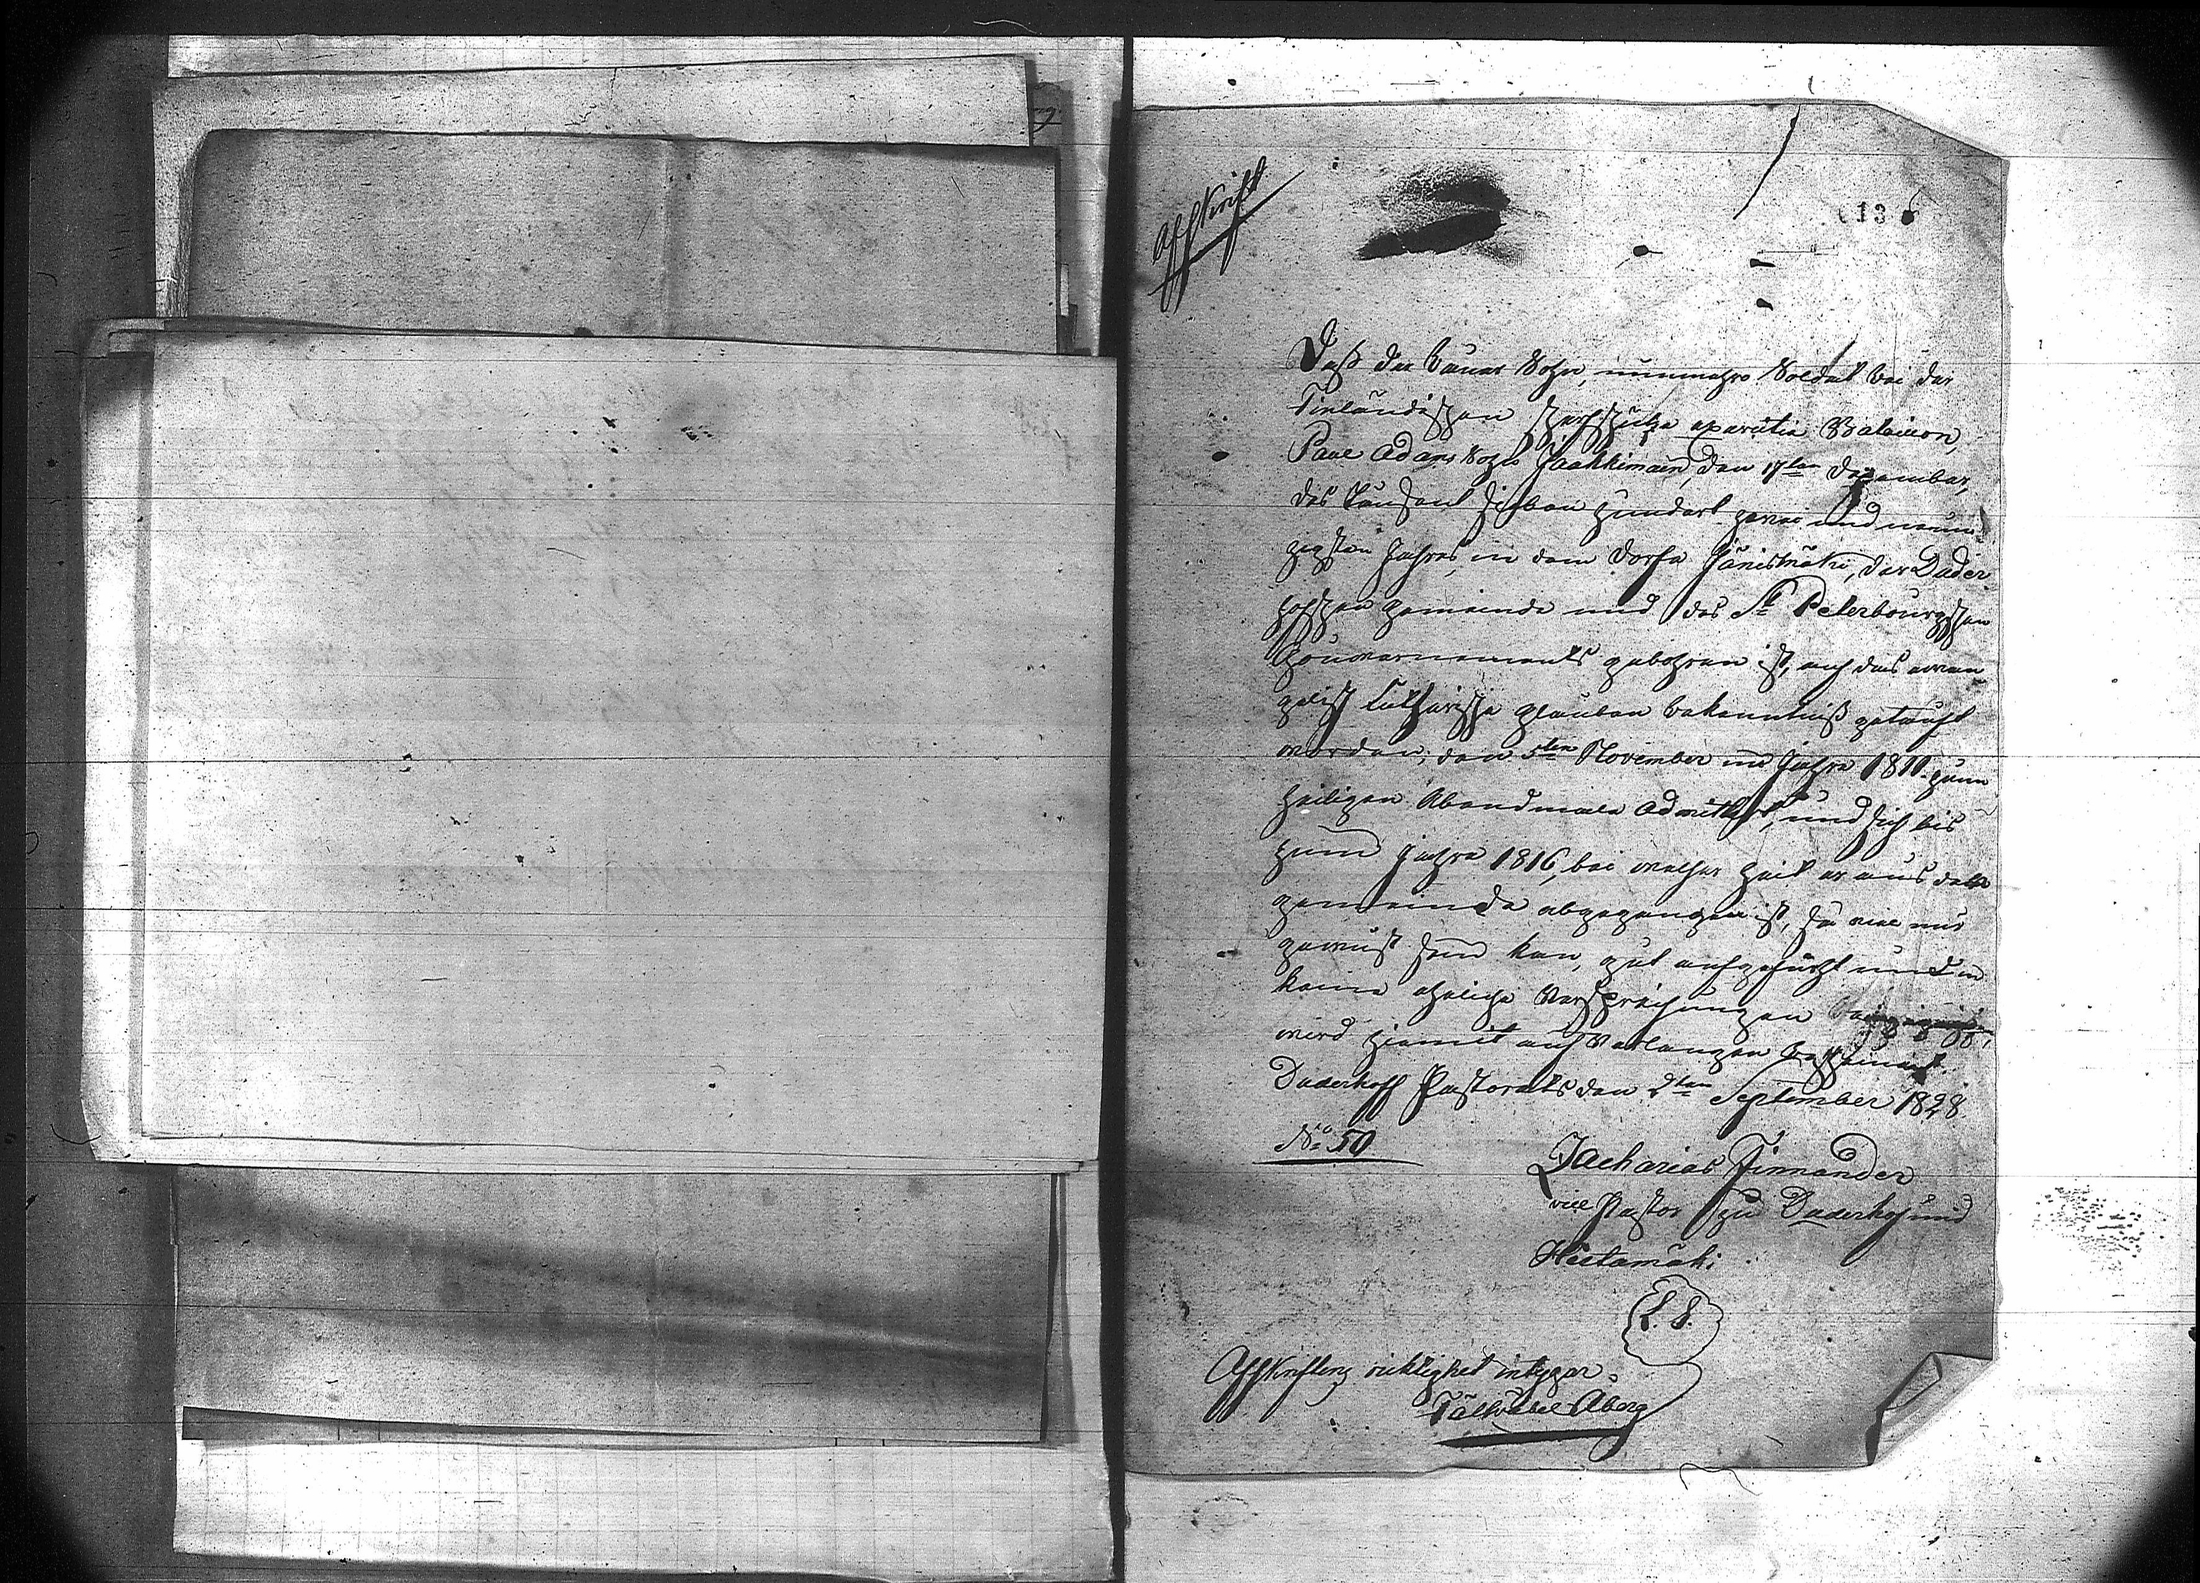 Affskrifft
13
Daß der Bauer Sohn, nunmehro Soldat bei der
Finländischen Scharfschütze Bataillon,
Paul Adams Sohn Jaakkimain, den 17ten Dezember,
des Tausent sieben hundert zwei und neun
zigsten Jahres, in dem Dorfe Jänismäki, der Duder
hoffschen Gemeinde und des St Peterbourgschen
Gouvernements gebohren ist, auf das evan
gelisch Lutherische glauben bekenntniß getauft
worden, den 5ten November im Jahre 1811 zum
heiligen Abendmale admittirt, und sich bis
zum Jahre 1816, bei welcher Zeit er aus
gemeinde abgegangen ist, so viel mir
gewust sein kan, gut aufgeführt und in
keine eheliche Versprechungen
wird hiemit auf Verlangen bescheinigt.
Duderhoff Pastorats den 2ten September 1828.
No 50
Zacharias Finnander
vice Pastor zu Duderhof und
Hietamäki
L. S.
Affskriftens riktighet intygar.
Fältväbel Åberg